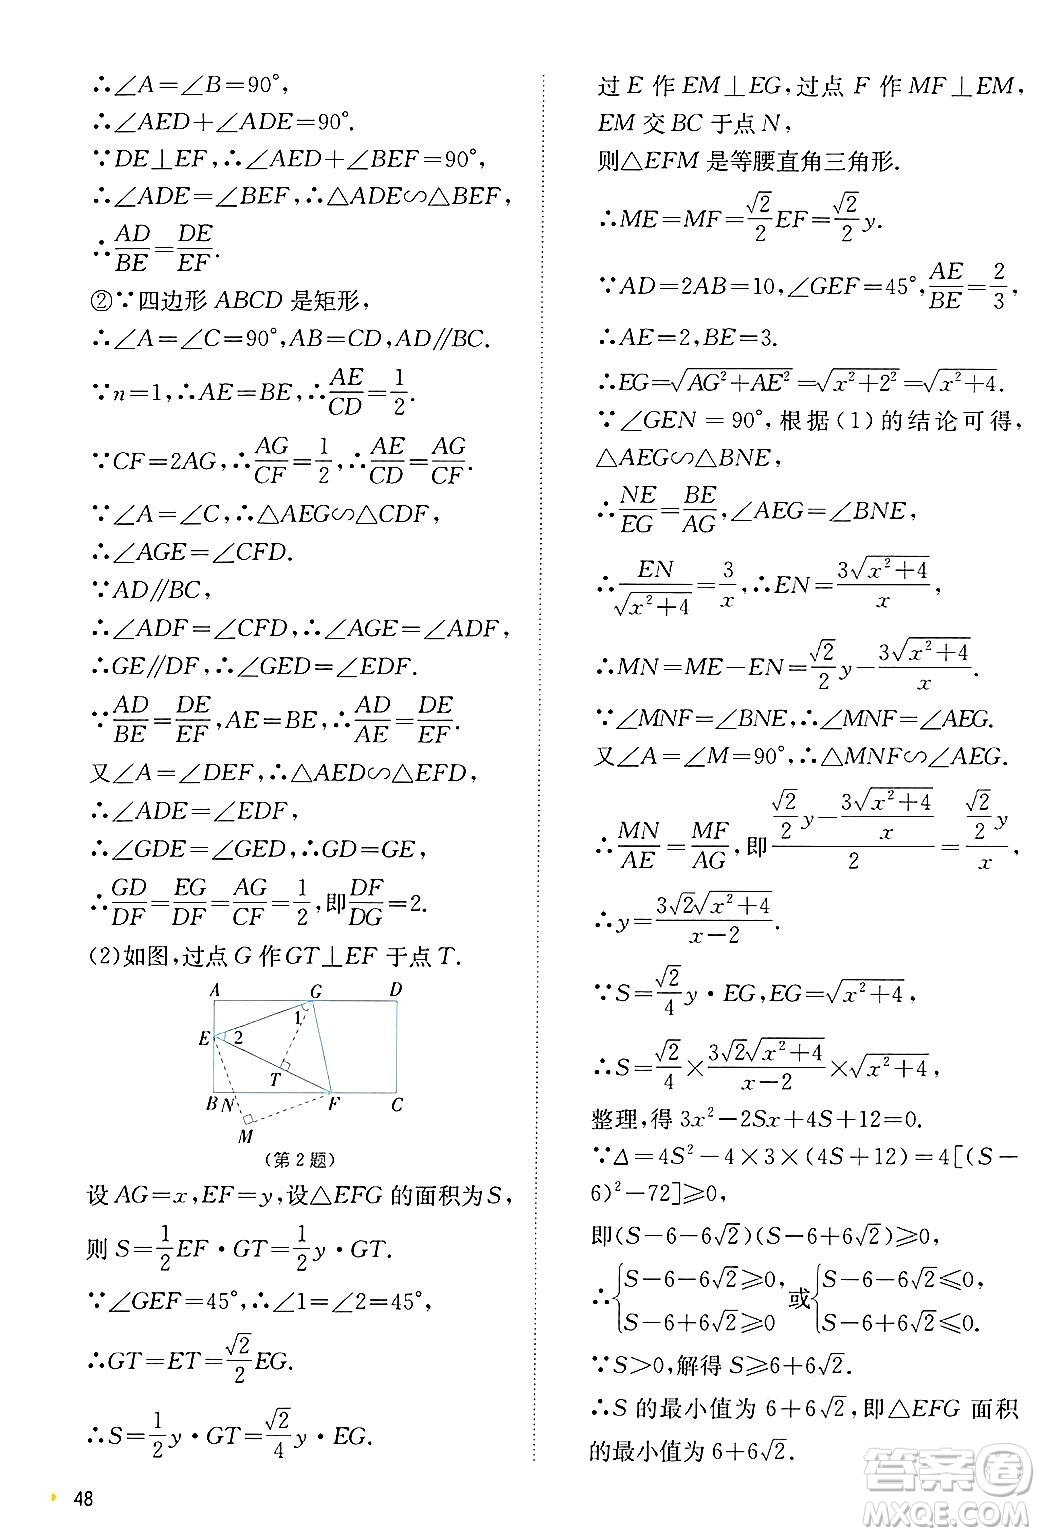 ∴∠A=∠B=90°,
∴∠AED+∠ADE=90°.
∵DE⊥EF,∴∠AED+∠BEF=90°,
∴∠ADE=∠BEF,∴△ADE∽△BEF,
∴AD/BE=DE/EF.
②∵四边形 ABCD 是矩形,
∴∠A=∠C=90°,AB=CD,AD∥BC.
∵n=1,∴AE=BE,∴AE/CD=1/2.
∵CF=2AG,∴AG/CF=1/2,∴AE/CD=AG/CF.
∵∠A=∠C,∴△AEG∽△CDF,
∴∠AGE=∠CFD.
∵AD∥BC,
∴∠ADF=∠CFD,∴∠AGE=∠ADF,
∴GE∥DF,∴∠GED=∠EDF.
∵AD/BE=DE/EF,AE=BE,∴AD/AE=DE/EF.
又∠A=∠DEF,∴△AED∽△EFD,
∴∠ADE=∠EDF,
∴∠GDE=∠GED,∴GD=GE,
∴GD/DF=EG/DF=AG/CF=1/2,即DF/DG=2.
(2)如图,过点 G 作 GT⊥EF 于点 T.
A G D
1
E 2
T
B N F C
M
(第 2 题)
设 AG=x,EF=y,设△EFG 的面积为 S,
则 S=1/2EF·GT=1/2y·GT.
∵∠GEF=45°,∴∠1=∠2=45°,
∴GT=ET=√2/2EG.
∴S=1/2y·GT=√2/4y·EG.
48
过 E 作 EM⊥EG,过点 F 作 MF⊥EM,
EM 交 BC 于点 N,
则△EFM 是等腰直角三角形.
∴ME=MF=√2/2EF=√2/2y.
∵AD=2AB=10,∠GEF=45°,AE/BE=2/3,
∴AE=2,BE=3.
∴EG=√(AG²+AE²)=√(x²+2²)=√(x²+4).
∵∠GEN=90°,根据(1)的结论可得,
△AEG∽△BNE,
∴NE/EG=BE/AG,∠AEG=∠BNE,
∴EN/√(x²+4)=3/x,∴EN=3√(x²+4)/x,
∴MN=ME-EN=√2/2y-3√(x²+4)/x.
∵∠MNF=∠BNE,∴∠MNF=∠AEG.
又∠A=∠M=90°,∴△MNF∽△AEG.
∴MN/AE=MF/AG,即(√2/2y-3√(x²+4)/x)/2=(√2/2y)/x,
∴y=3√2√(x²+4)/(x-2).
∵S=√2/4y·EG,EG=√(x²+4),
∴S=√2/4×3√2√(x²+4)/(x-2)×√(x²+4),
整理,得 3x²-2Sx+4S+12=0.
∵Δ=4S²-4×3×(4S+12)=4[(S-
6)²-72]≥0,
即(S-6-6√2)(S-6+6√2)≥0,
∴{S-6-6√2≥0, S-6+6√2≥0 或{S-6-6√2≤0, S-6+6√2≤0.
∵S>0,解得 S≥6+6√2,
∴S 的最小值为 6+6√2,即△EFG 面积
的最小值为 6+6√2.
答案圈
MXQE.COM